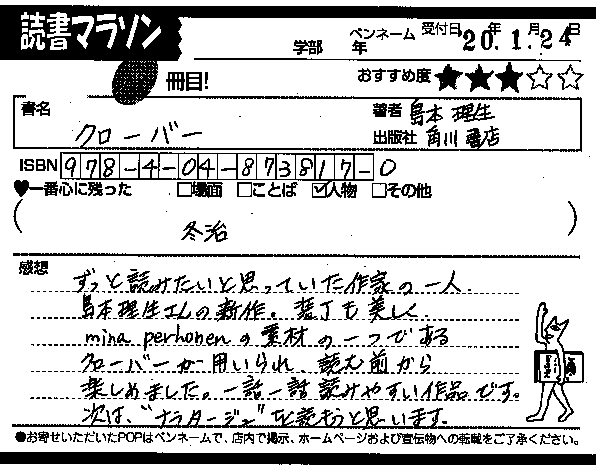 読書マラソン
冊目!
学部 年 ペンネーム 受付日 20年1月24日
おすすめ度 ★★★☆☆
書名 クローバー
著者 島本理生
出版社 角川書店
ISBN 978-4-04-873817-0
♥一番心に残った □場面 □ことば ☑人物 □その他
( 冬治 )
感想
ずっと読みたいと思っていた作家の一人.
島本理生さんの新作。装丁も美しく.
mina perhonenの素材の一つである
クローバーが用いられ、読む前から
楽しめました。一話一話読みやすい作品です。
次は、"ナラタージュ"を読もうと思います.
●お寄せいただいたPOPはペンネームで、店内で掲示、ホームページおよび宣伝物への転載をご了承ください。